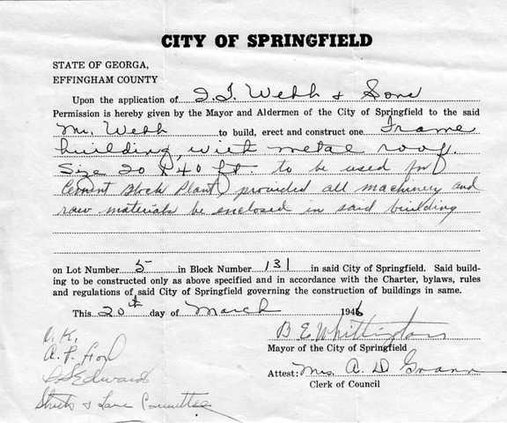 CITY OF SPRINGFIELD
STATE OF GEORGA,
EFFINGHAM COUNTY
Upon the application of I. I. Webb & Sons
Permission is hereby given by the Mayor and Aldermen of the City of Springfield to the said
Mr. Webb to build, erect and construct one Frame
building, with metal roof.
Size 20 x 40 ft to be used for
Cement Block Plant, provided all machinery and
raw materials be enclosed in said building
on Lot Number 5 in Block Number 131 in said City of Springfield. Said build-
ing to be constructed only as above specified and in accordance with the Charter, bylaws, rules
and regulations of said City of Springfield governing the construction of buildings in same.
This 20th day of March 1946
B E Whittington
Mayor of the City of Springfield
Attest: Mrs. A. D.
Clerk of Council
O.K.
A. P.
Edward
Streets & Lane Committee